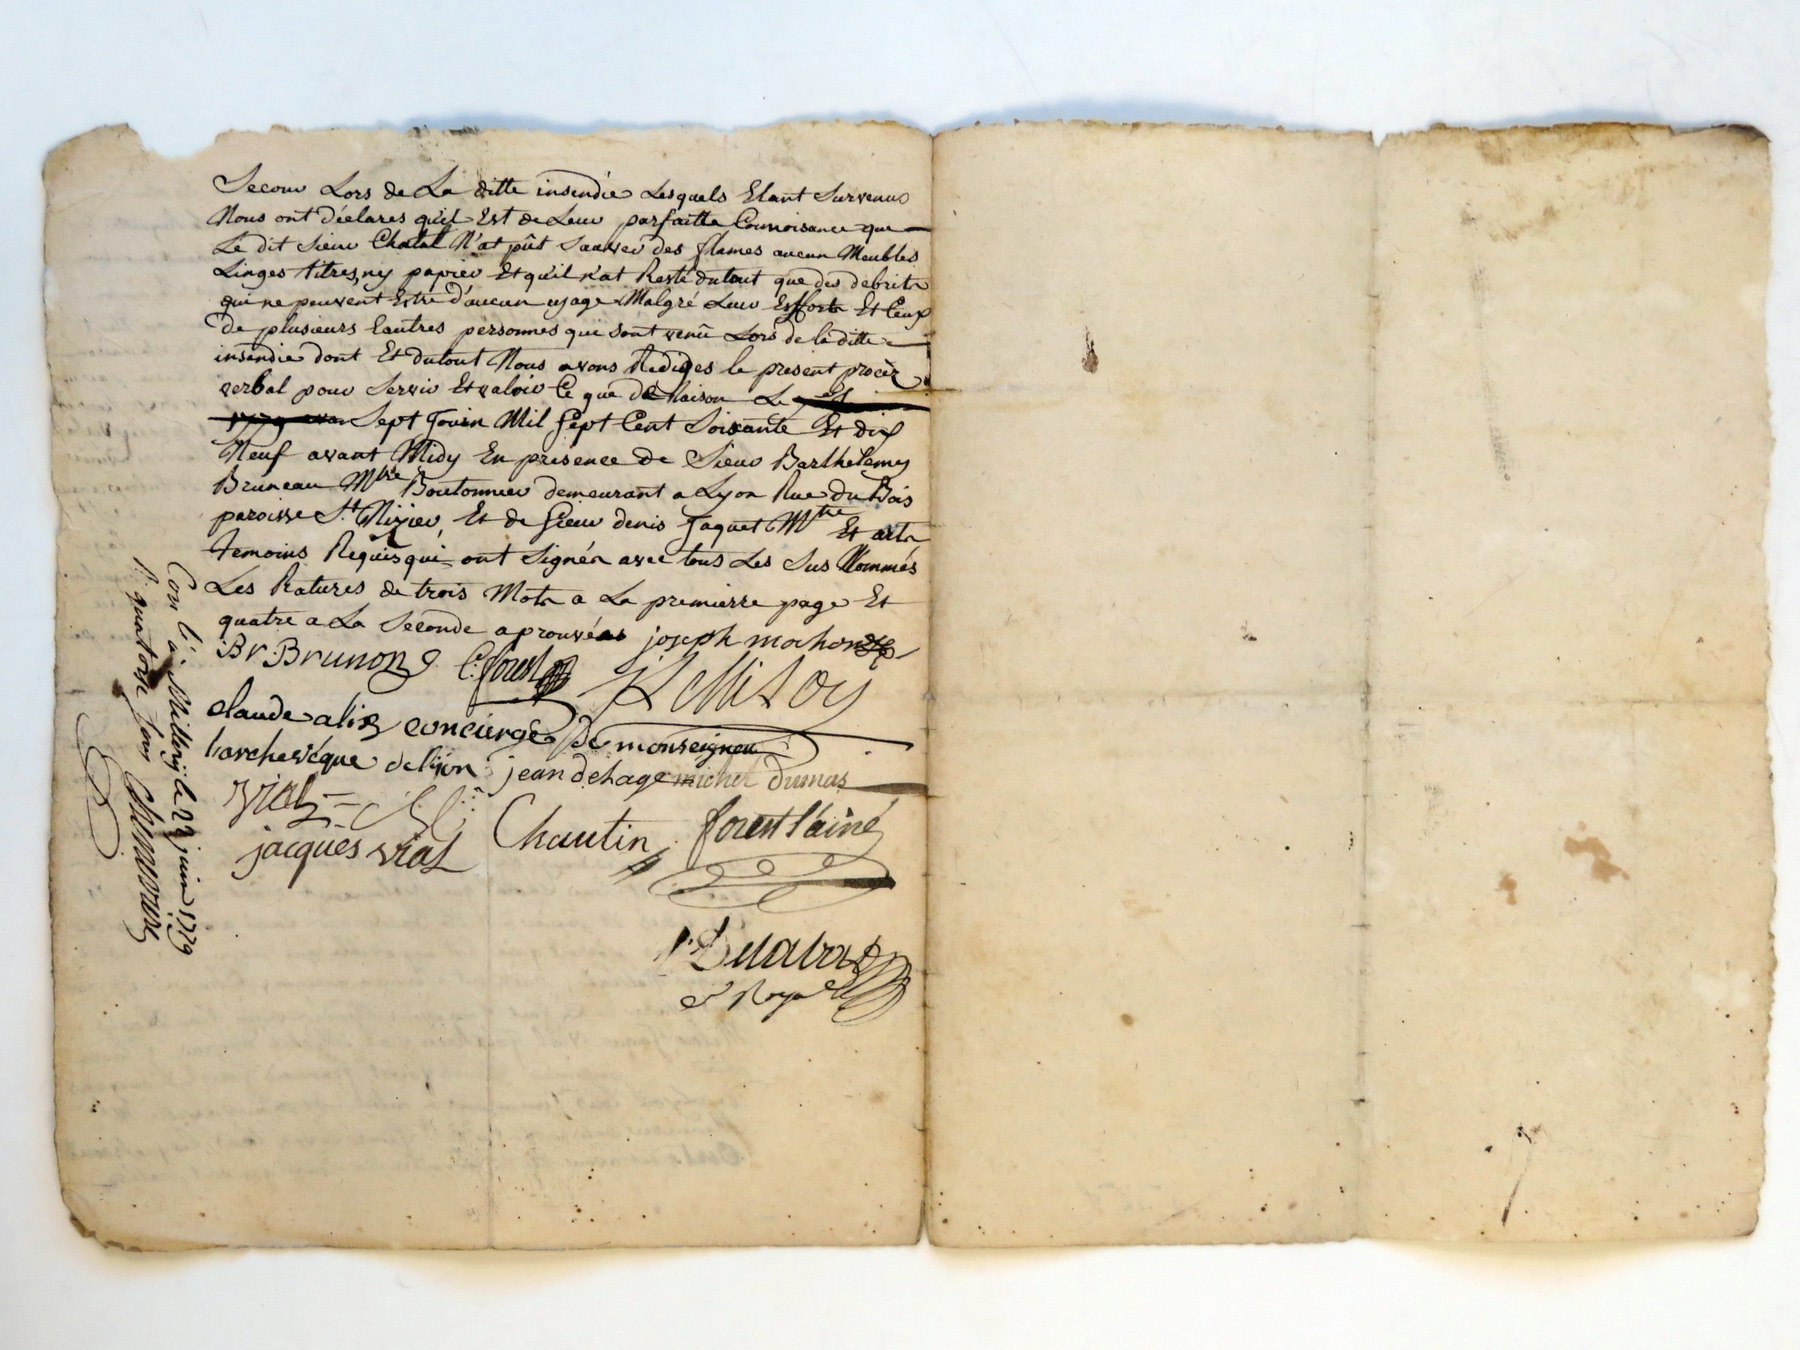 Secour Lors de La ditte insendie Lesquels Etant Survenus
Nous ont déclares qu'il Est de Leur parfaitte Connoisance que
Le dit Sieur Chatal N'at pût Sauver des flames aucun Meubles
Linges titres, ny papier Et qu'il n'at Resté dutout que des debrits
qui ne peuvent Estre d'aucun usage Malgré Leur Efforts Et Ceux
de plusieurs Eautres personnes qui sont venû Lors de la ditte
insendie dont Et dutout Nous avons Rediges le present procès
verbal pour Servir Et valoir Ce que de Raison Le
Sept Jouin Mil Sept Cent Soixante Et dix
Neuf avant Midy En presence de Sieur Barthelemy
Bruneau Mtre Boutonnier demeurant a Lyon Rue du Bois
paroisse St Nizier, Et de Sieur denis Jaquet Mtre Et arts
temoins Requis qui ont Signés avec tous Les Sus Nommés
Les Ratures de trois Mots a La premierre page Et
quatre a La Seconde aprouvéés joseph mochon
Br. Brunon C. forest
claude alix concierge De monseigneur
l'archevêque de lyon jean dehage michel Dumas
Vial
jacques vial Chautin forest l'ainé
Delabor
Nr Royal
Con. l. à Millery le 22 juin 1779
R. quatorze sous